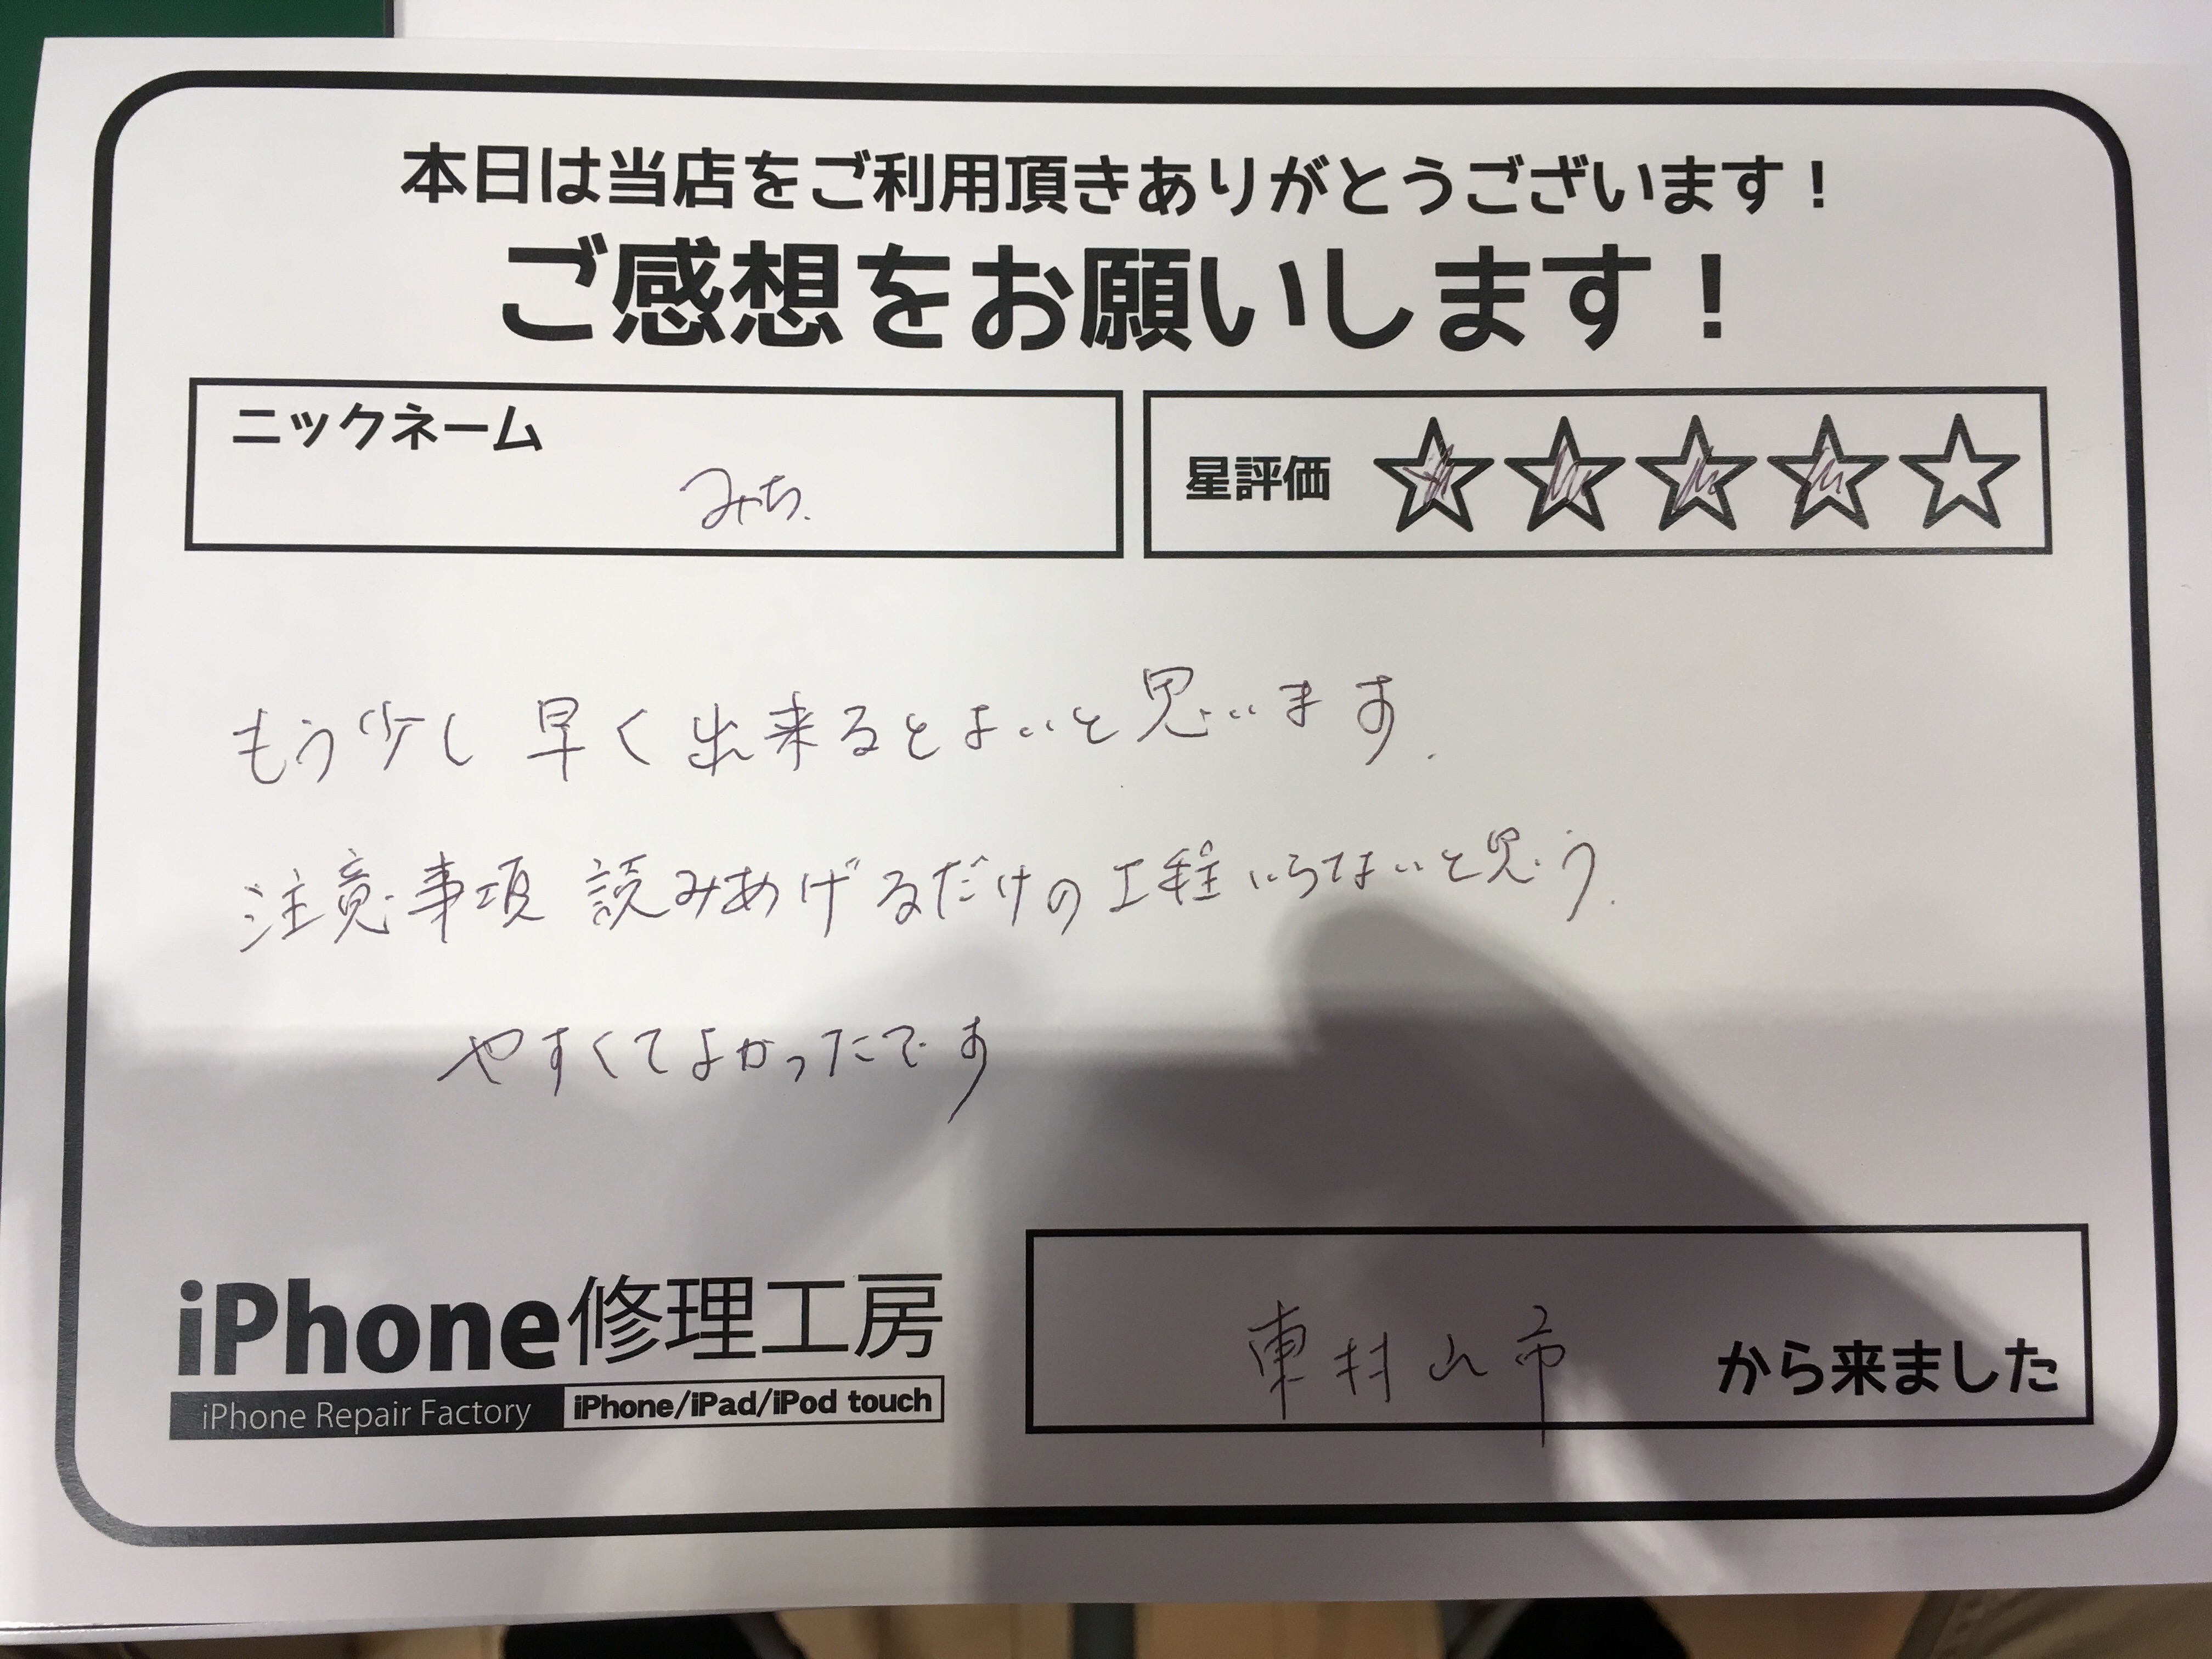 本日は当店をご利用頂きありがとうございます！
ご感想をお願いします！
ニックネーム
みち.
星評価 ★★★★☆
もう少し早く出来るとよいと思います.
注意事項 読みあげるだけの工程いらないと思う.
やすくてよかったです
iPhone修理工房
iPhone Repair Factory iPhone/iPad/iPod touch
東村山市 から来ました